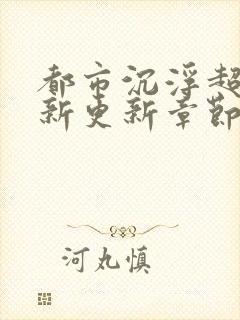 都市沉浮超
新更新章節
河丸慎